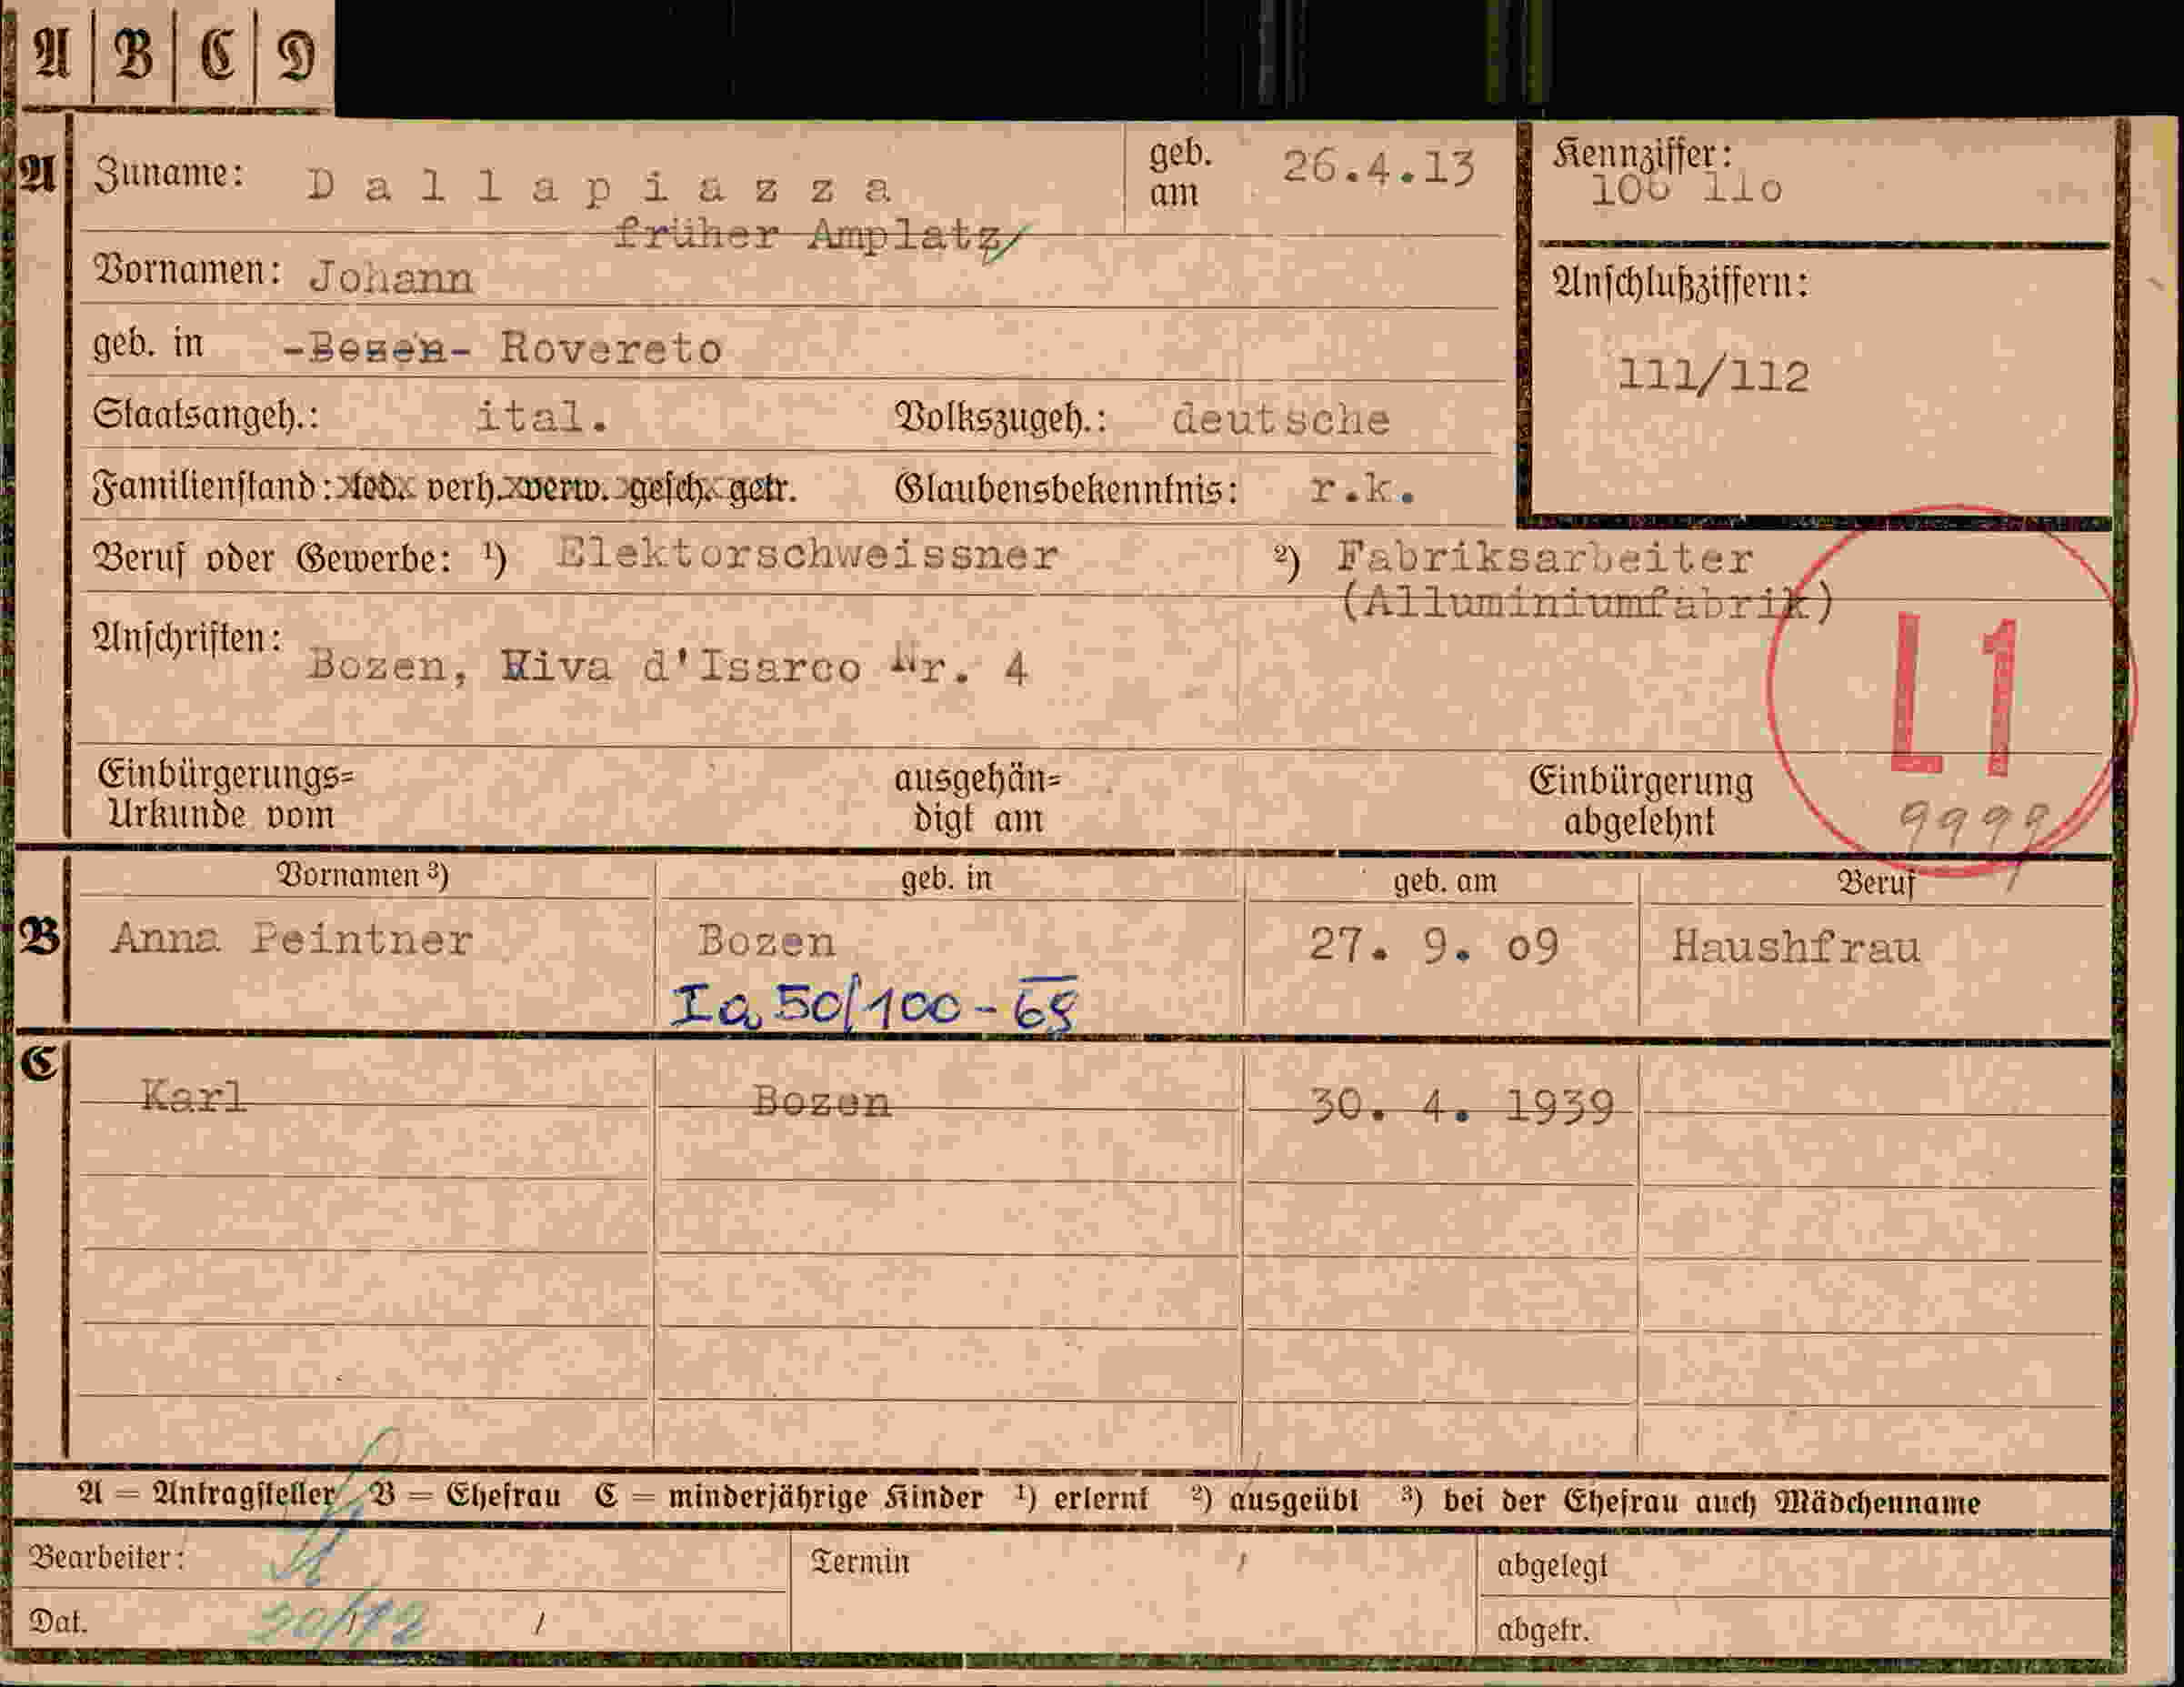 A B C D
A Zuname: Dallapiazza geb. am 26.4.13
früher Amplatz
Kennziffer: 106 110
Vornamen: Johann
Anschlußziffern:
111/112
geb. in -Bozen- Rovereto
Staatsangeh.: ital. Volkszugeh.: deutsche
Familienstand: led. verh. verw. gesch. getr. Glaubensbekenntnis: r.k.
Beruf oder Gewerbe: ¹) Elektorschweissner ²) Fabriksarbeiter
(Alluminiumfabrik)
Anschriften: Bozen, Riva d'Isarco Nr. 4
L1
Einbürgerungs=
Urkunde vom
ausgehän=
digt am
Einbürgerung
abgelehnt
9999
Vornamen ³) geb. in geb. am Beruf
B Anna Peintner Bozen 27. 9. o9 Haushfrau
Ia 50/100-
C Karl Bozen 30. 4. 1939
A = Antragsteller B = Ehefrau C = minderjährige Kinder ¹) erlernt ²) ausgeübt ³) bei der Ehefrau auch Mädchenname
Bearbeiter: Termin abgelegt
Dat. abgetr.